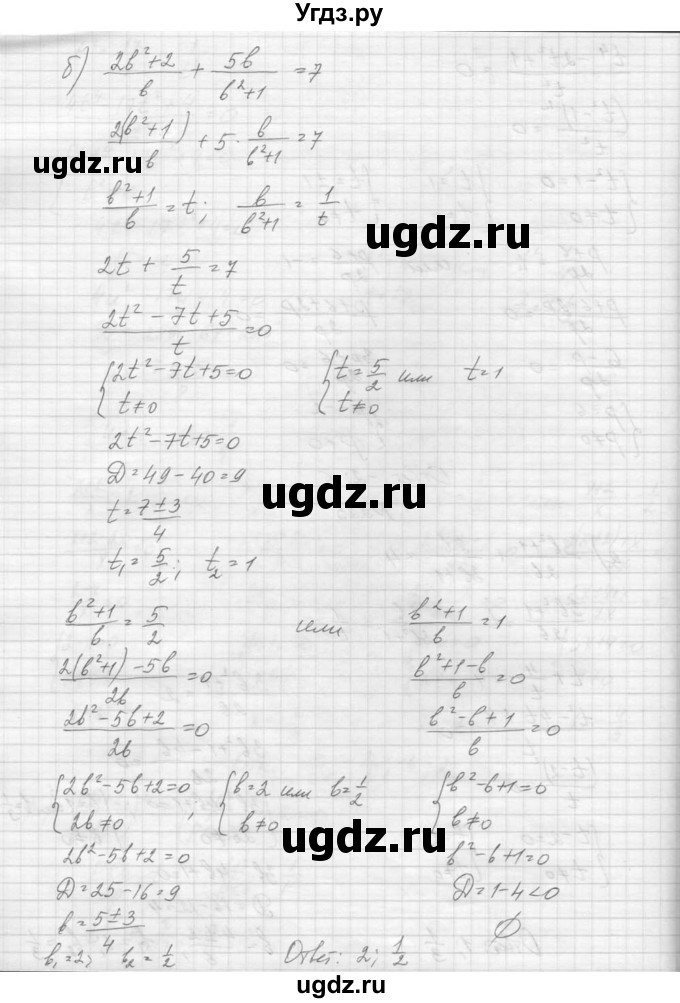 Угдз.ру
б) (2b²+2)/b + 5b/(b²+1) = 7
2(b²+1)/b + 5 · b/(b²+1) = 7
ugdz.ru
(b²+1)/b = t; b/(b²+1) = 1/t
ugdz.ru
2t + 5/t = 7
(2t² − 7t + 5)/t = 0
{2t² − 7t + 5 = 0 {t = 5/2 или t = 1
t ≠ 0 t ≠ 0
2t² − 7t + 5 = 0
D = 49 − 40 = 9
ugdz.ru
t = (7 ± 3)/4
t₁ = 5/2; t₂ = 1
(b²+1)/b = 5/2 или (b²+1)/b = 1
(2(b²+1) − 5b)/2b = 0 (b²+1−b)/b = 0
(2b² − 5b + 2)/2b = 0 (b² − b + 1)/b = 0
{2b² − 5b + 2 = 0 {b = 2 или b = 1/2 {b² − b + 1 = 0
2b ≠ 0 , b ≠ 0 b ≠ 0
ugdz.ru
2b² − 5b + 2 = 0 b² − b + 1 = 0
D = 25 − 16 = 9 D = 1 − 4 < 0
b = (5 ± 3)/4 ∅
b₁ = 2; b₂ = 1/2 Ответ: 2; 1/2
ugdz.ru